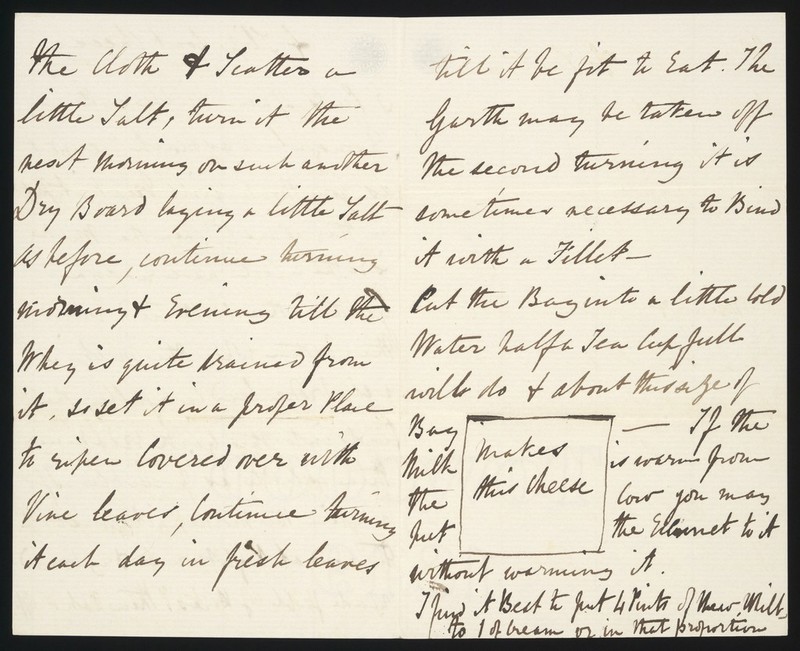 the Cloth & Scatter a
little Salt, turn it the
next morning on such another
Dry Board laying a little Salt
as before, continue turning
morning & Evening till the
Whey is quite drained from
it, so set it in a proper Place
to ripen Covered over with
Vine leaves, Continue turning
it each day in fresh leaves
till it be fit to Eat. The
Garth may be taken off
the second turning it is
sometimes necessary to Bind
it with a Fillet—
Cut the Bag into a little Cold
Water half a Tea Cup full
will do & about this size of
Bag — If the
Milk is warm from
the Cow you may
put the Erunet to it
makes
this Cheese
without warming it.
I find it Best to put 4 Pints of New Milk
to 1 of Cream or in that proportion